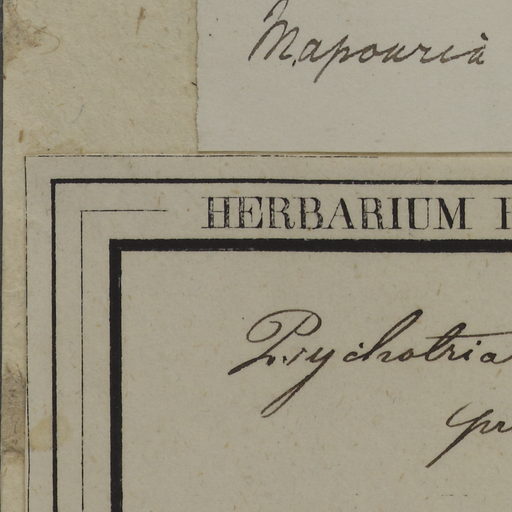 Mapouria
HERBARIUM
Psychotria